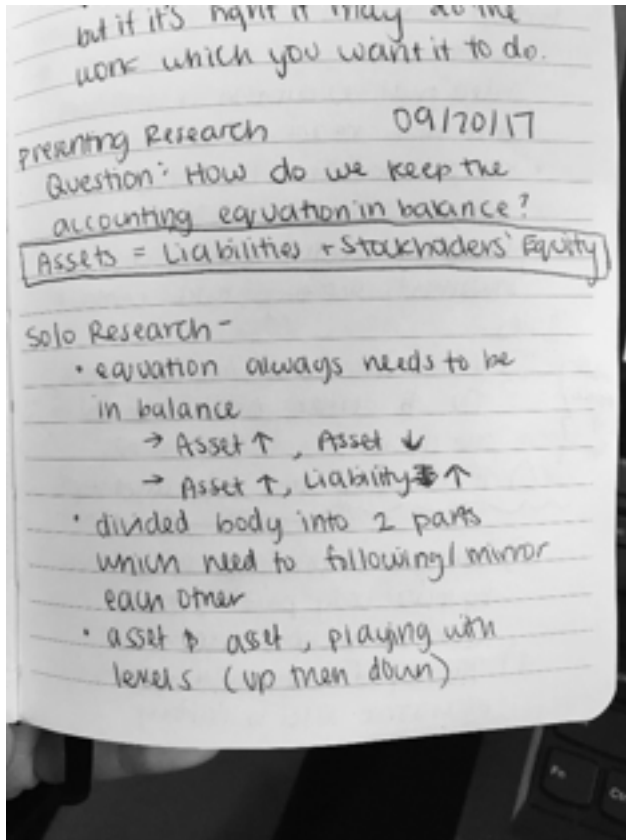 but if it's right it may do the
work which you want it to do.
presenting Research 09/20/17
Question: How do we keep the
accounting equation in balance?
Assets = Liabilities + Stockholders' Equity
Solo Research -
• equation always needs to be
in balance
→ Asset ↑, Asset ↓
→ Asset ↑, Liability ↑
• divided body into 2 parts
which need to following/mirror
each other
• asset & asset, playing with
levels (up then down)
Fn